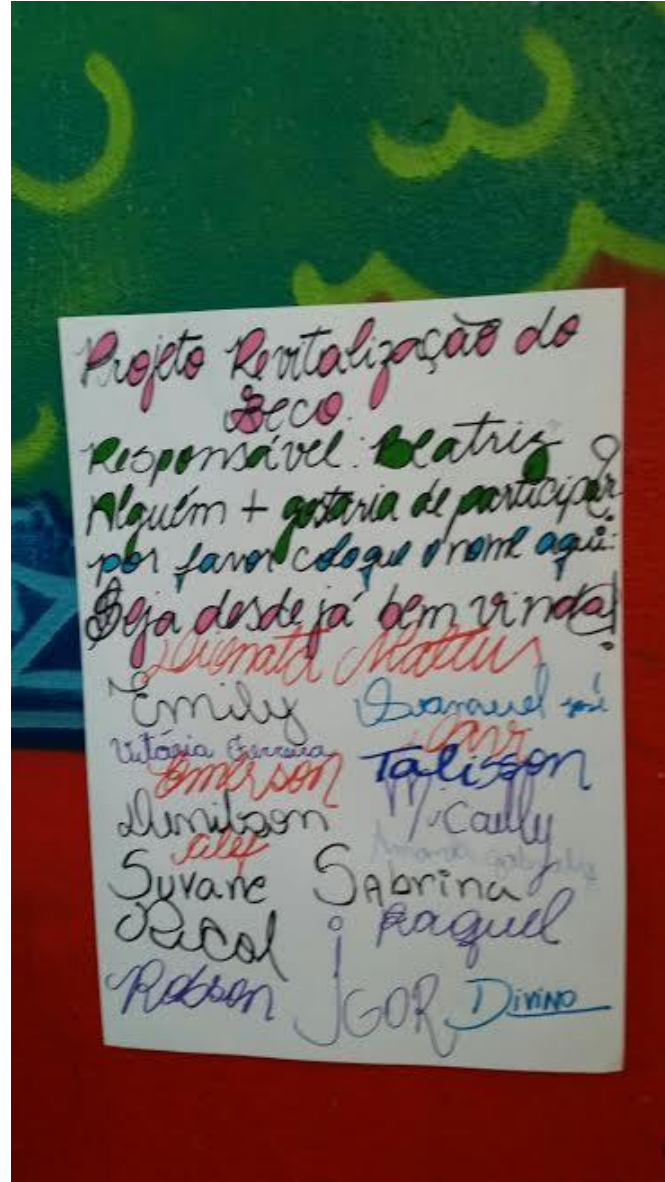 Projeto Revitalização do
Beco.
Responsável: Beatriz
Alguém + gostaria de participar?
por favor coloque o nome aqui:
Seja desde já bem vinda!
Mattus
Emily
José
Vitória Ferreira
Emerson Talisson
Denilson Micaelly
Alef Amanda
Suvane Sabrina
Raquel
Robson IGOR Divino